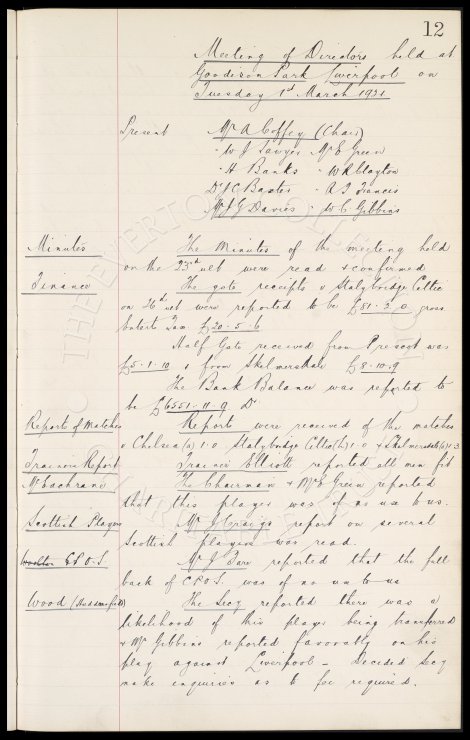 12
Meeting of Directors held at
Goodison Park Liverpool on
Tuesday 1st March 1921
Present Mr A Coffey (Chair)
" W J Sawyer Mr E Green
" H Banks " W R Clayton
Dr J C Baxter " A J Francis
Mr J G Davies " W C Gibbins
Minutes The Minutes of the meeting held
on the 23rd ult were read & confirmed
Finance The gate receipts v Stalybridge Celtic
on 26th ult were reported to be £81. 3. 0 gross
Entert Tax £20. 5. 6
Half Gate received from Prescot was
£5. 1. 10 & from Skelmersdale £8. 10. 9
The Bank Balance was reported to
be £6551. 11. 9 Dr
Reports of Matches Reports were received of the matches
v Chelsea (a) 1-0 Stalybridge Celtic (h) 1-0 & Skelmersdale (a) 1-3
Trainers Report Trainer Elliott reported all men fit
McEachrane The Chairman & Mr E Green reported
that this player was of no use to us.
Scottish Players Mr J Craigs report on several
Scottish players was read.
C.P.O.S. Mr J Fare reported that the full
back of C.P.O.S. was of no use to us
Wood The Secy reported there was a
likelihood of this player being transferred
& Mr Gibbins reported favorably on his
play against Liverpool – Decided Secy
make enquiries as to fee required.